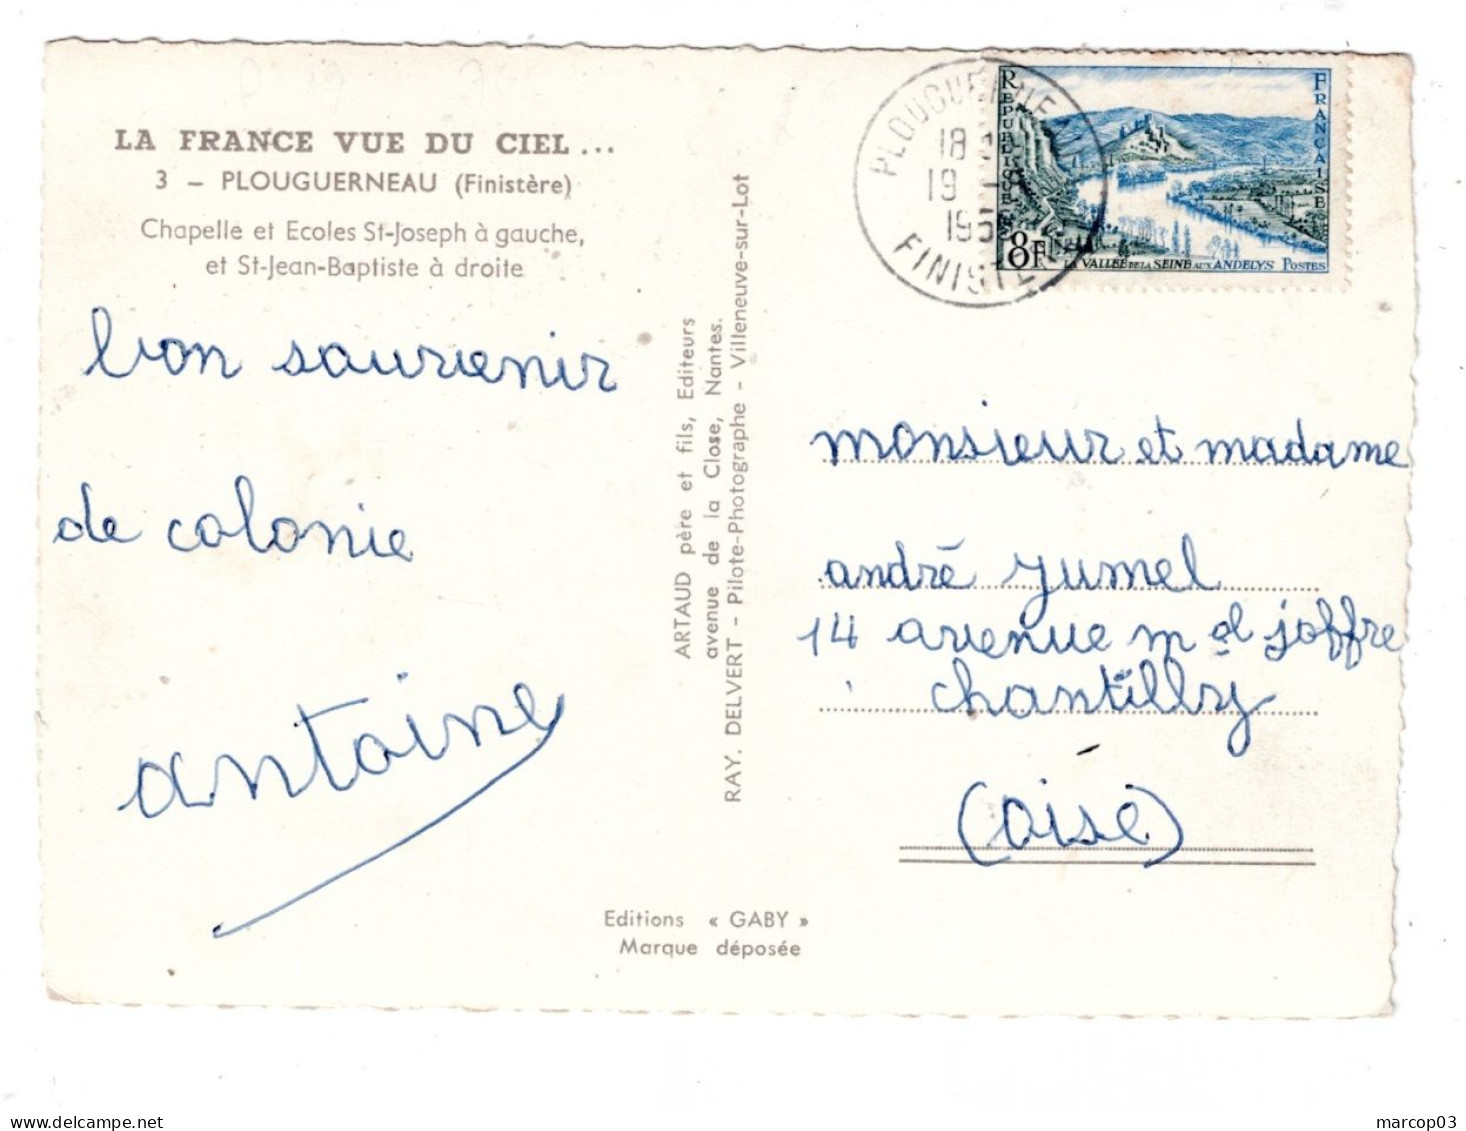 LA FRANCE VUE DU CIEL...
3 – PLOUGUERNEAU (Finistère)
Chapelle et Ecoles St-Joseph à gauche,
et St-Jean-Baptiste à droite
bon souvenir
de colonie
antoine
ARTAUD père et fils, Editeurs
avenue de la Close, Nantes.
RAY. DELVERT - Pilote-Photographe - Villeneuve-sur-Lot
Editions « GABY »
Marque déposée
18
19
195
FINISTE
REPUBLIQUE
FRANÇAISE
8F
LA VALLÉE DE LA SEINE AUX ANDELYS POSTES
monsieur et madame
andré jumel
14 avenue mal joffre
chantilly
(oise)
marcop03